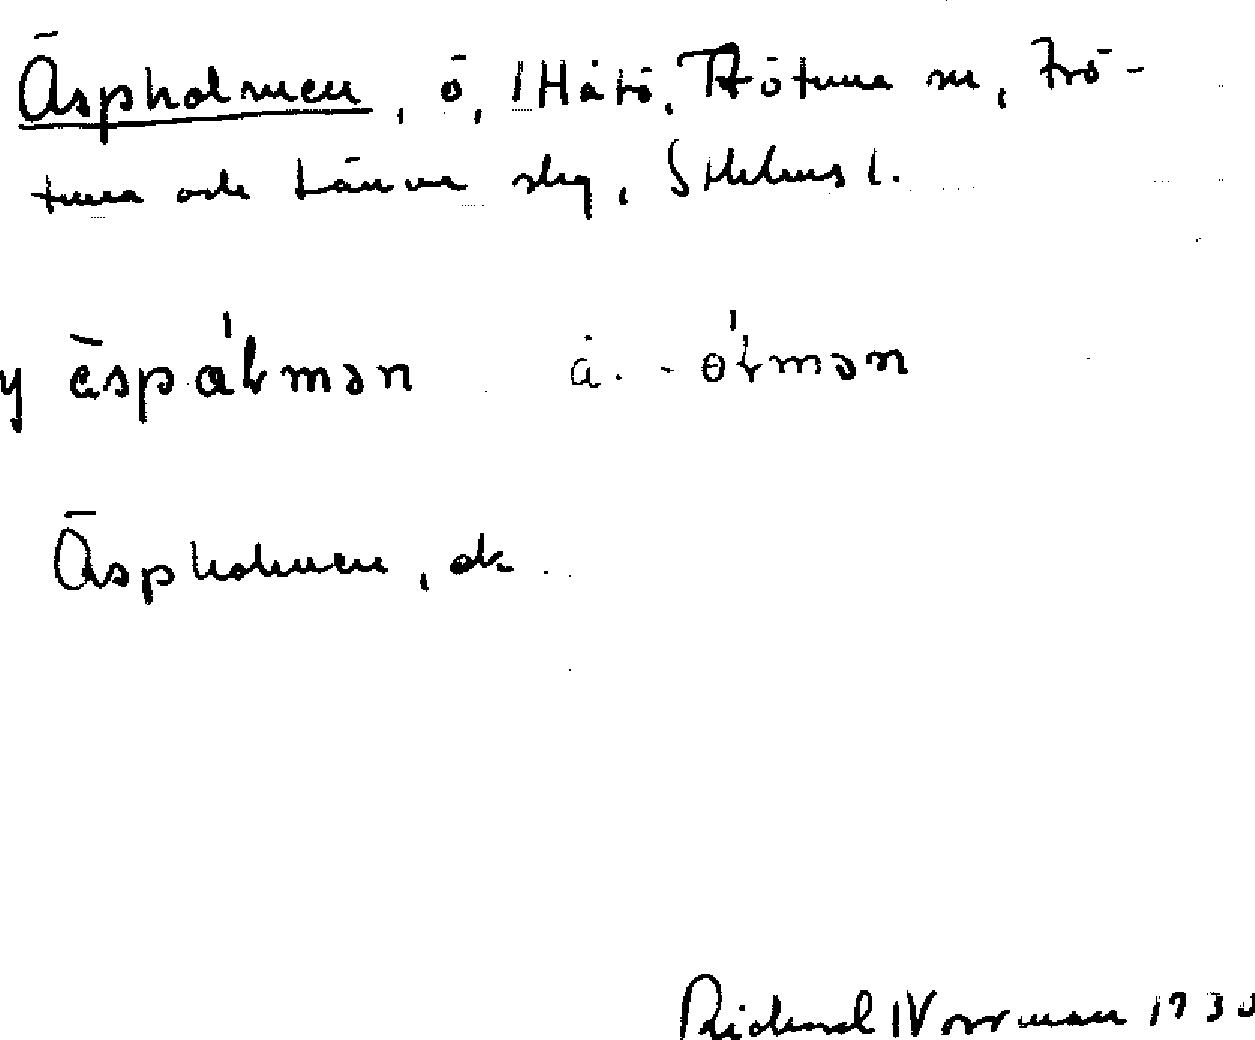 Äspholmen, ö, Håtö, Frötuna sn, Frö-
tuna och Länna skg, Sthlms l.
y ä̀spáɫmən ä. - óɫmən
Äspholmen, dk
Rickard Norrman 1930